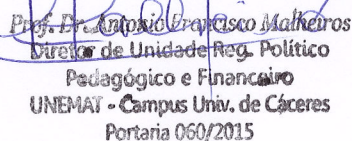 Prof. Dr. Antonio Francisco Malheiros
Diretor de Unidade Reg. Político
Pedagógico e Financeiro
UNEMAT - Campus Univ. de Cáceres
Portaria 060/2015